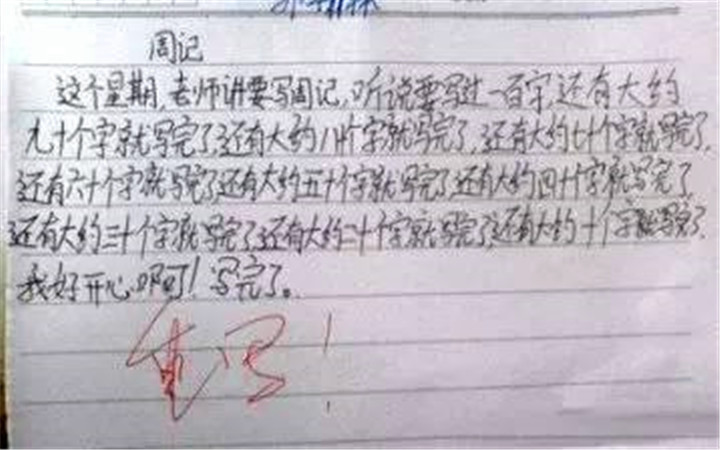 周记
这个星期,老师讲要写周记,听说要写过一百字,还有大约
九十个字就写完了,还有大约八十个字就写完了,还有大约七十个字就写完了,
还有六十个字就写完了还有大约五十个字就写完了还有大约四十个字就写完了
还有大约三十个字就写完了还有大约二十个字就写完了还有大约十个字就写完了,
我好开心啊!写完了。
重写!